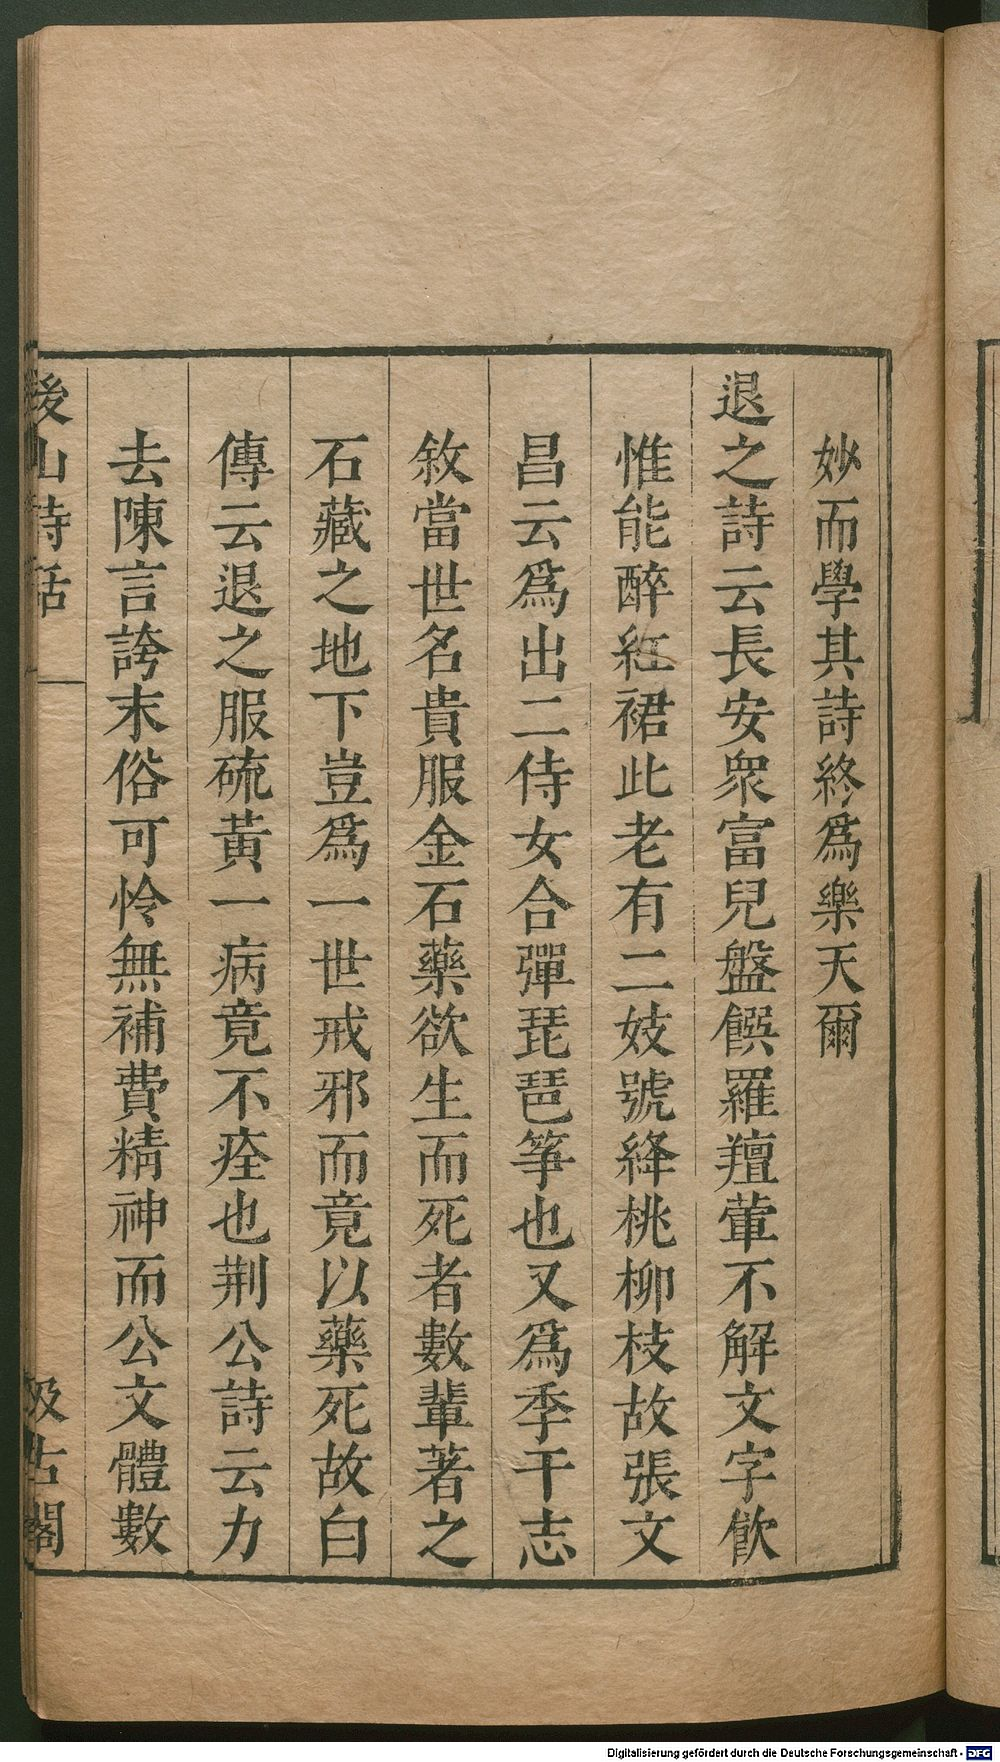 妙而學其詩終爲樂天爾
退之詩云長安衆富兒盤饌羅羶葷不解文字飲
惟能醉紅裙此老有二妓號絳桃柳枝故張文
昌云爲出二侍女合彈琵琶箏也又爲季干志
敘當世名貴服金石藥欲生而死者數輩著之
石藏之地下豈爲一世戒邪而竟以藥死故白
傳云退之服硫黃一病竟不痊也荆公詩云力
去陳言誇末俗可怜無補費精神而公文體數
後山詩話
汲古閣
Digitalisierung gefördert durch die Deutsche Forschungsgemeinschaft - DFG